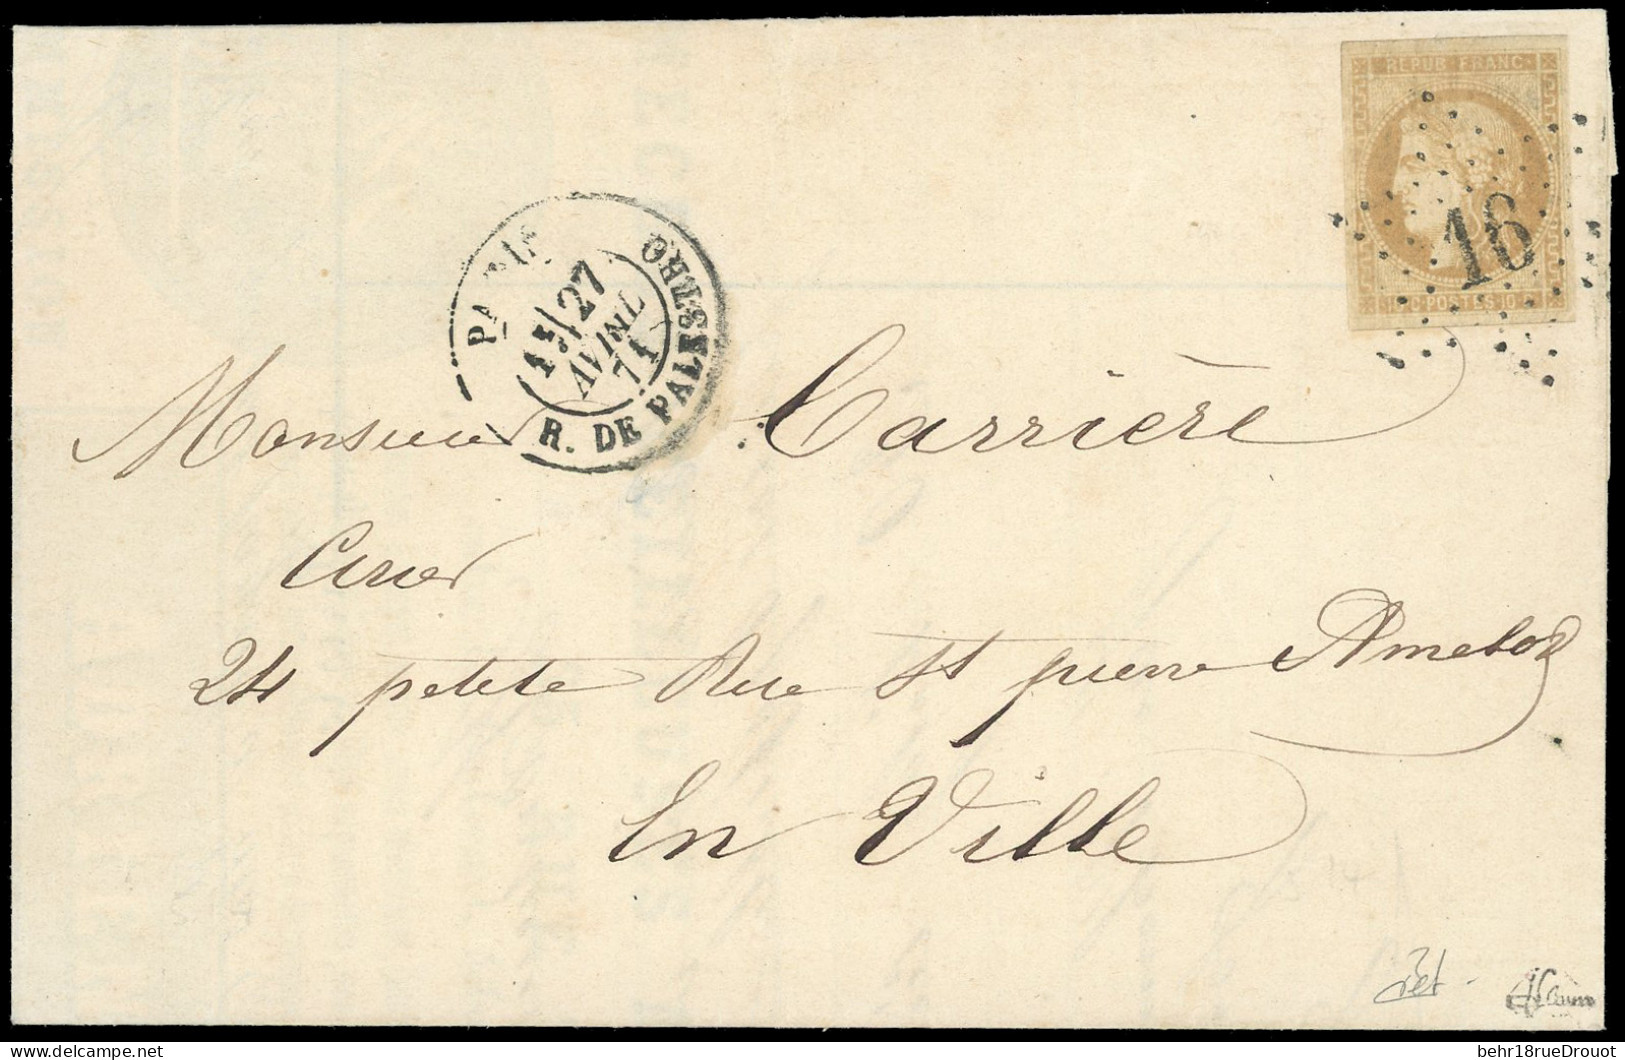 REPUB FRANC
16
10 C POSTES 10 C
PARIS
27
AVRIL
71
R. DE PALESTRO
Monsieur Carrière
24 petite Rue St pierre Amelot
En Ville
behr18rueDrouot